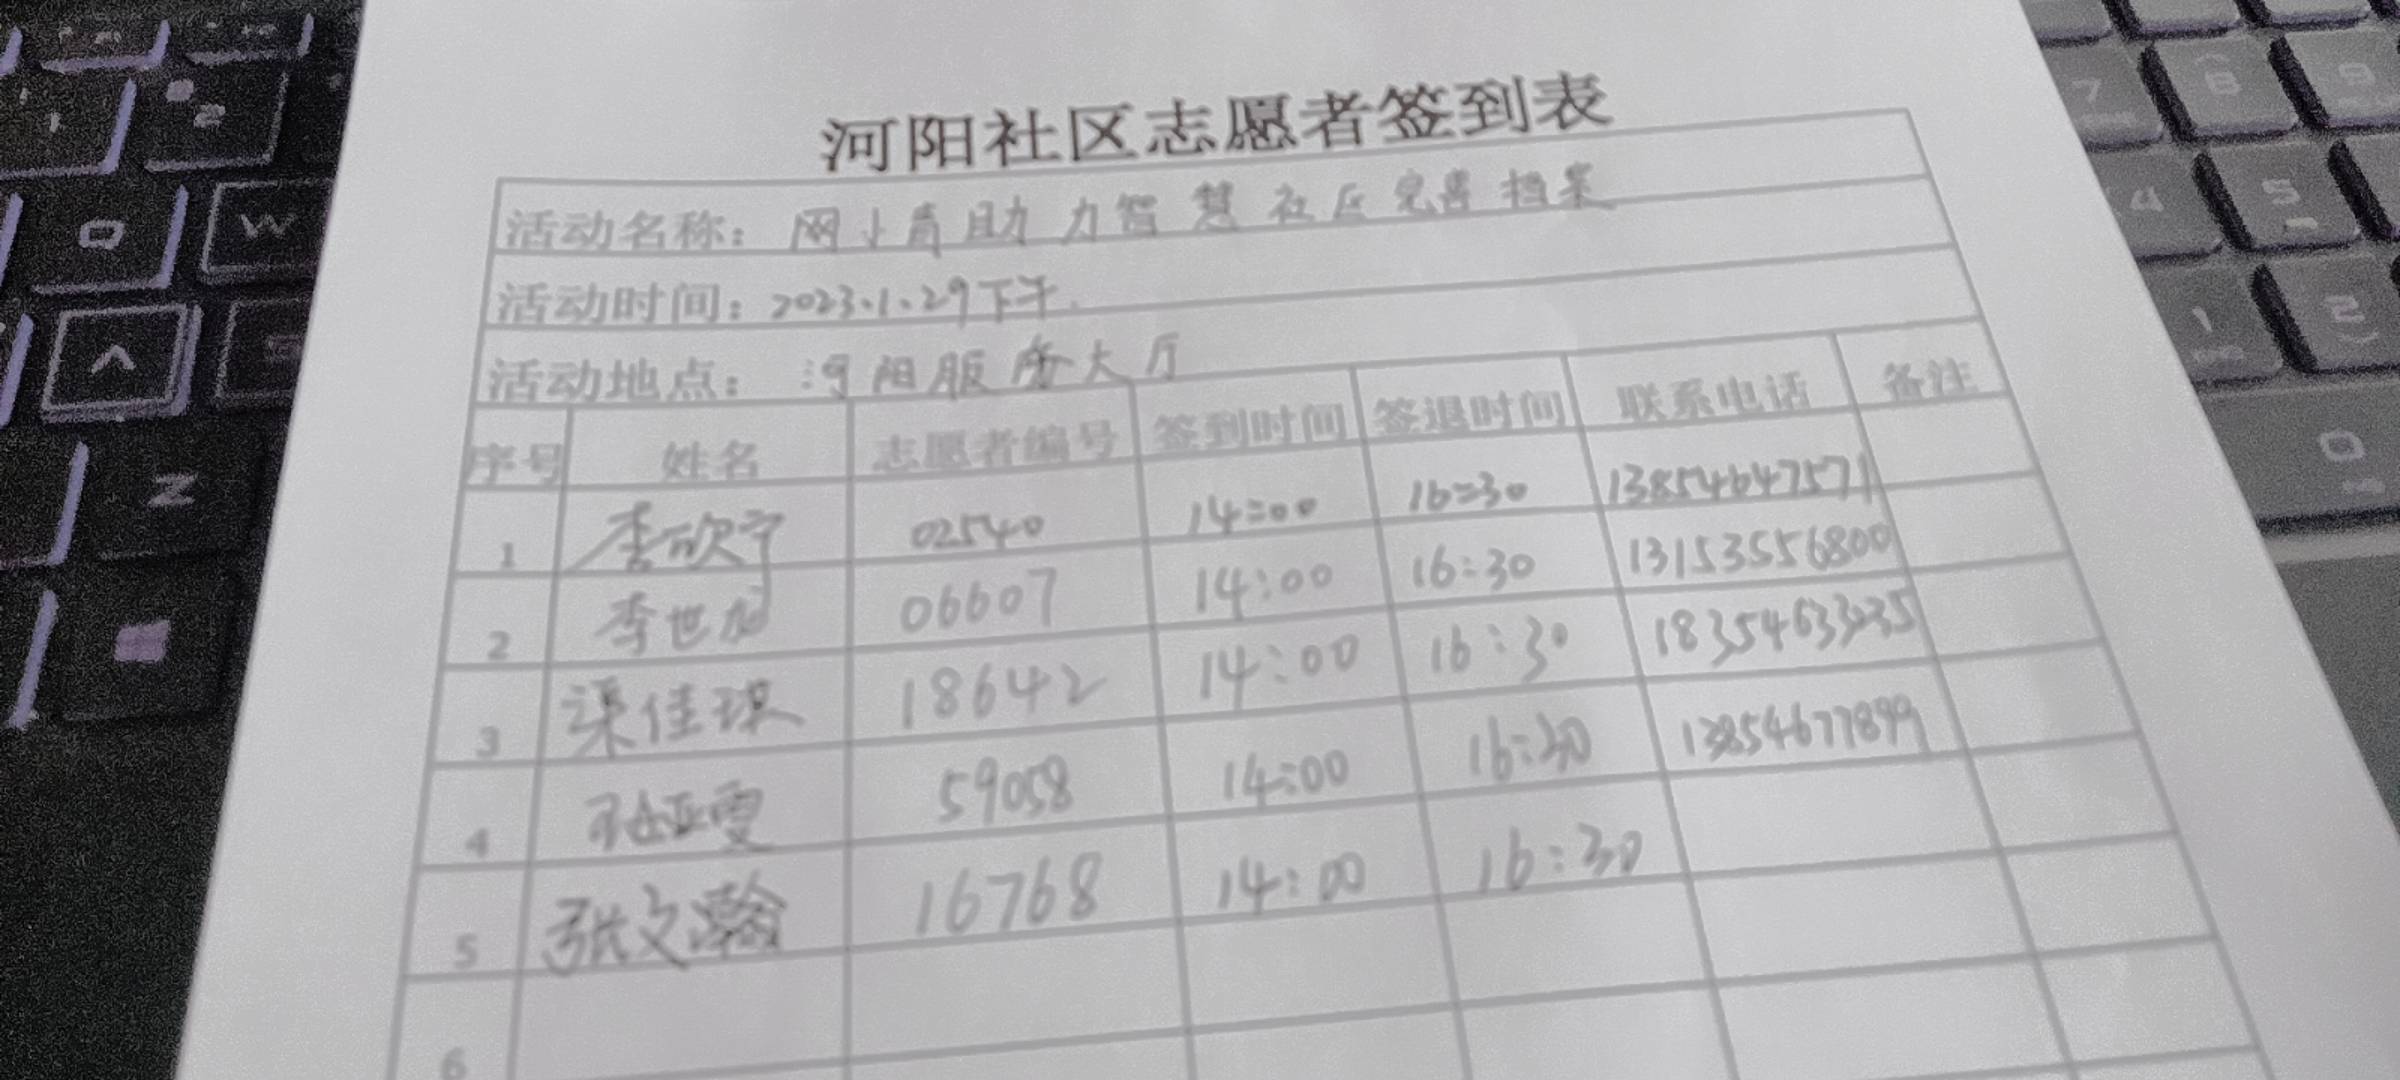 河阳社区志愿者签到表
活动名称: 网小青助力智慧社区完善档案
活动时间: 2023.1.29下午.
活动地点: 河阳服务大厅
序号 姓名 志愿者编号 签到时间 签退时间 联系电话 备注
1 李欣宁 02540 14:00 16:30 13854647571
2 李世 06607 14:00 16:30 13153556800
3 渠佳琪 18642 14:00 16:30
4 59058 14:00 16:30 13854677899
5 张文瀚 16768 14:00 16:30
6